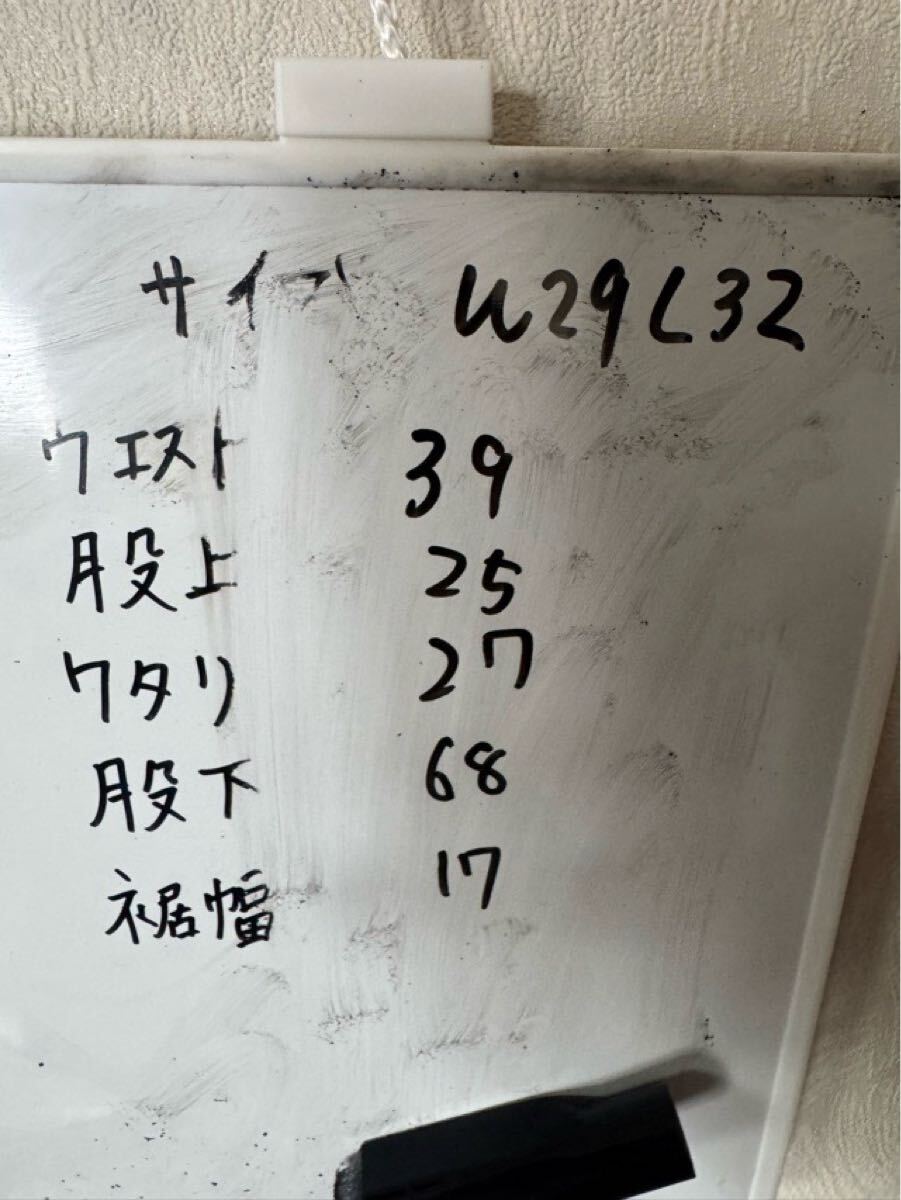 サイズ W29L32
ウエスト 39
股上 25
ワタリ 27
股下 68
裾幅 17